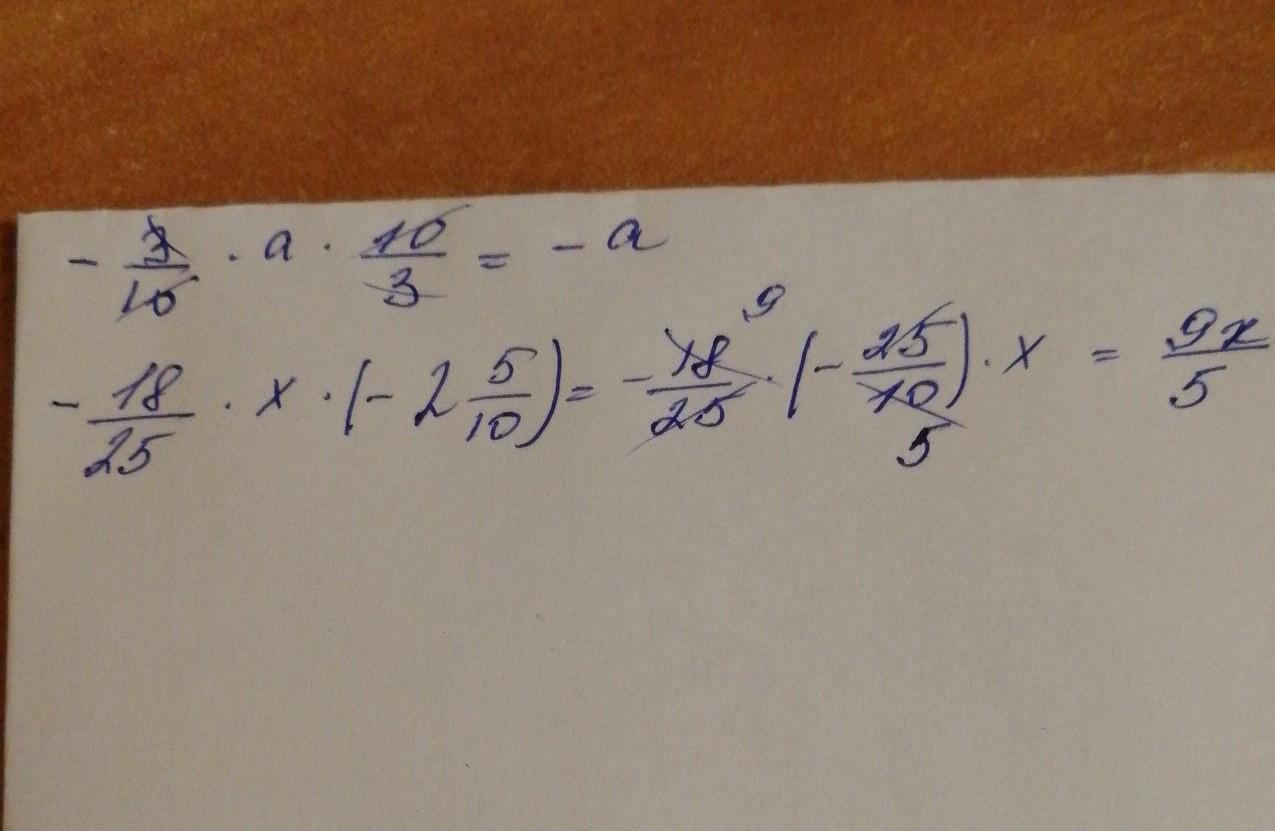 - 3/10 · a · 10/3 = - a
- 18/25 · x · (- 2 5/10) = - 18/25 9 · (- 25/10 5) · x = 9x/5